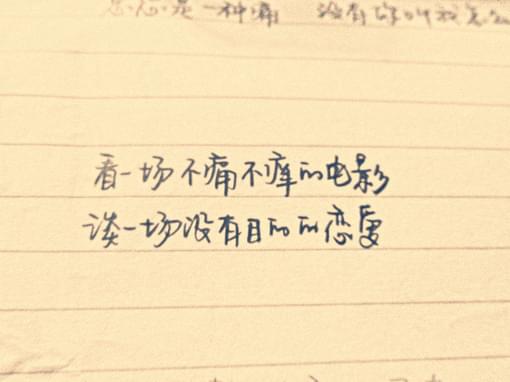 是一种痛 没有
看一场不痛不痒的电影
谈一场没有目的的恋爱